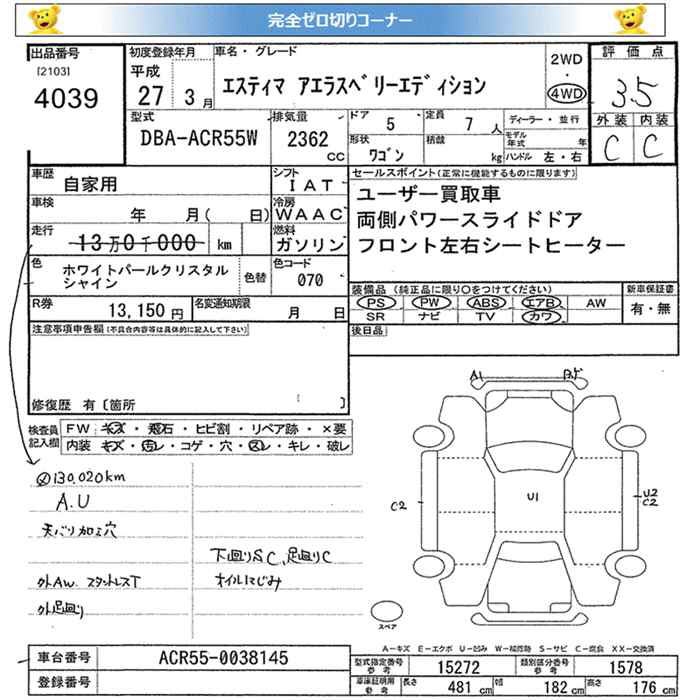 完全ゼロ切りコーナー
出品番号
[2103]
4039
初度登録年月
平成
27 3 月
車名・グレード
エスティマ アエラスベリーエディション
2WD
・
4WD
評価点
3.5
外装 内装
C C
型式
DBA-ACR55W
排気量
2362
CC
ドア
5
定員
7 人
形状
ワゴン
積載
kg
ディーラー・並行
モデル年式 年
ハンドル 左・右
車歴
自家用
シフト
IAT
車検
年 月( 日)
冷房
WAAC
走行
13万0千000 km
燃料
ガソリン
色
ホワイトパールクリスタルシャイン
色替
色コード
070
R券
13,150 円
名変通知期限
月 日
セールスポイント(正常に機能するものに限ります)
ユーザー買取車
両側パワースライドドア
フロント左右シートヒーター
装備品(純正品に限り○をつけてください)
新車保証書
PS PW ABS エアB AW
有・無
SR ナビ TV カワ
後日品
注意事項申告欄(不具合内容等は具体的に記入して下さい)
修復歴 有〔箇所 〕
検査員記入欄
FW キズ・飛石・ヒビ割・リペア跡・×要
内装 キズ・汚レ・コゲ・穴・スレ・キレ・破レ
130,020km
A.U
天バリ加工穴
下廻りSC、足廻りC
外AW. スタットレスT
オイルにじみ
外足廻り
A1
C2
U1
U2
C2
スペア
A-キズ E-エクボ U-凹み W-補修跡 S-サビ C-腐食 XX-交換済
車台番号
ACR55-0038145
登録番号
型式指定番号
参考
15272
類別区分番号
参考
1578
車庫証明用
参考
長さ 481 cm
幅 182 cm
高さ 176 cm